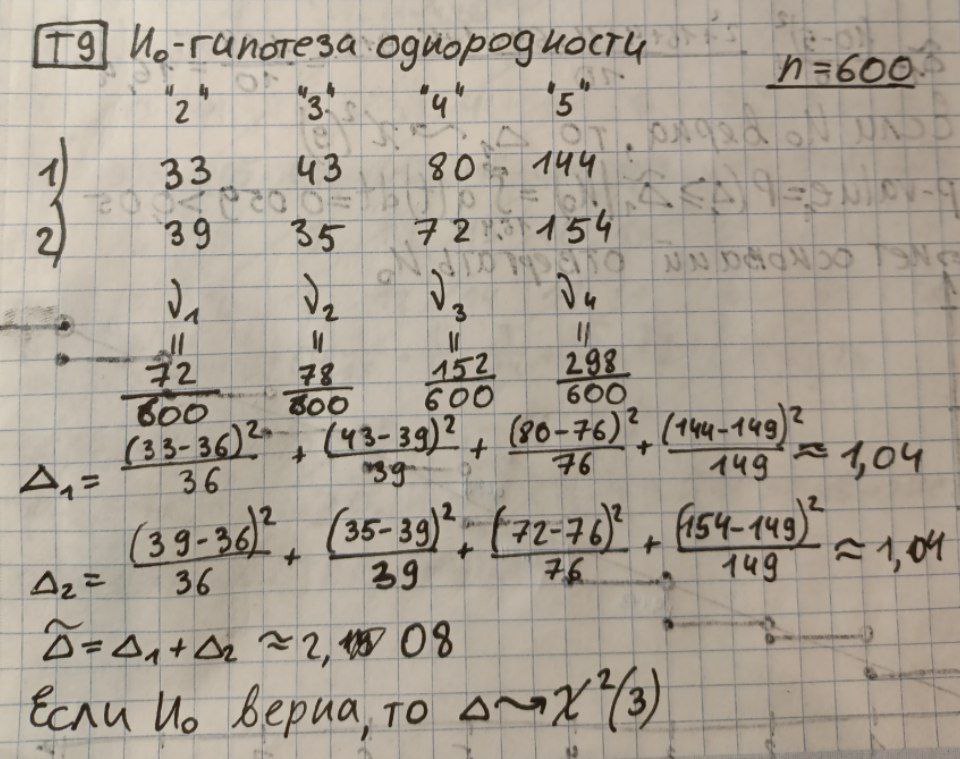 T9 H₀-гипотеза однородности
n=600
"2" "3" "4" "5"
1) 33 43 80 144
2) 39 35 72 154
ν₁ ν₂ ν₃ ν₄
= = = =
72/600 78/600 152/600 298/600
Δ₁ = (33-36)²/36 + (43-39)²/39 + (80-76)²/76 + (144-149)²/149 ≈ 1,04
Δ₂ = (39-36)²/36 + (35-39)²/39 + (72-76)²/76 + (154-149)²/149 ≈ 1,04
Δ̃ = Δ₁ + Δ₂ ≈ 2,08
Если H₀ верна, то Δ ⇝ χ²(3)